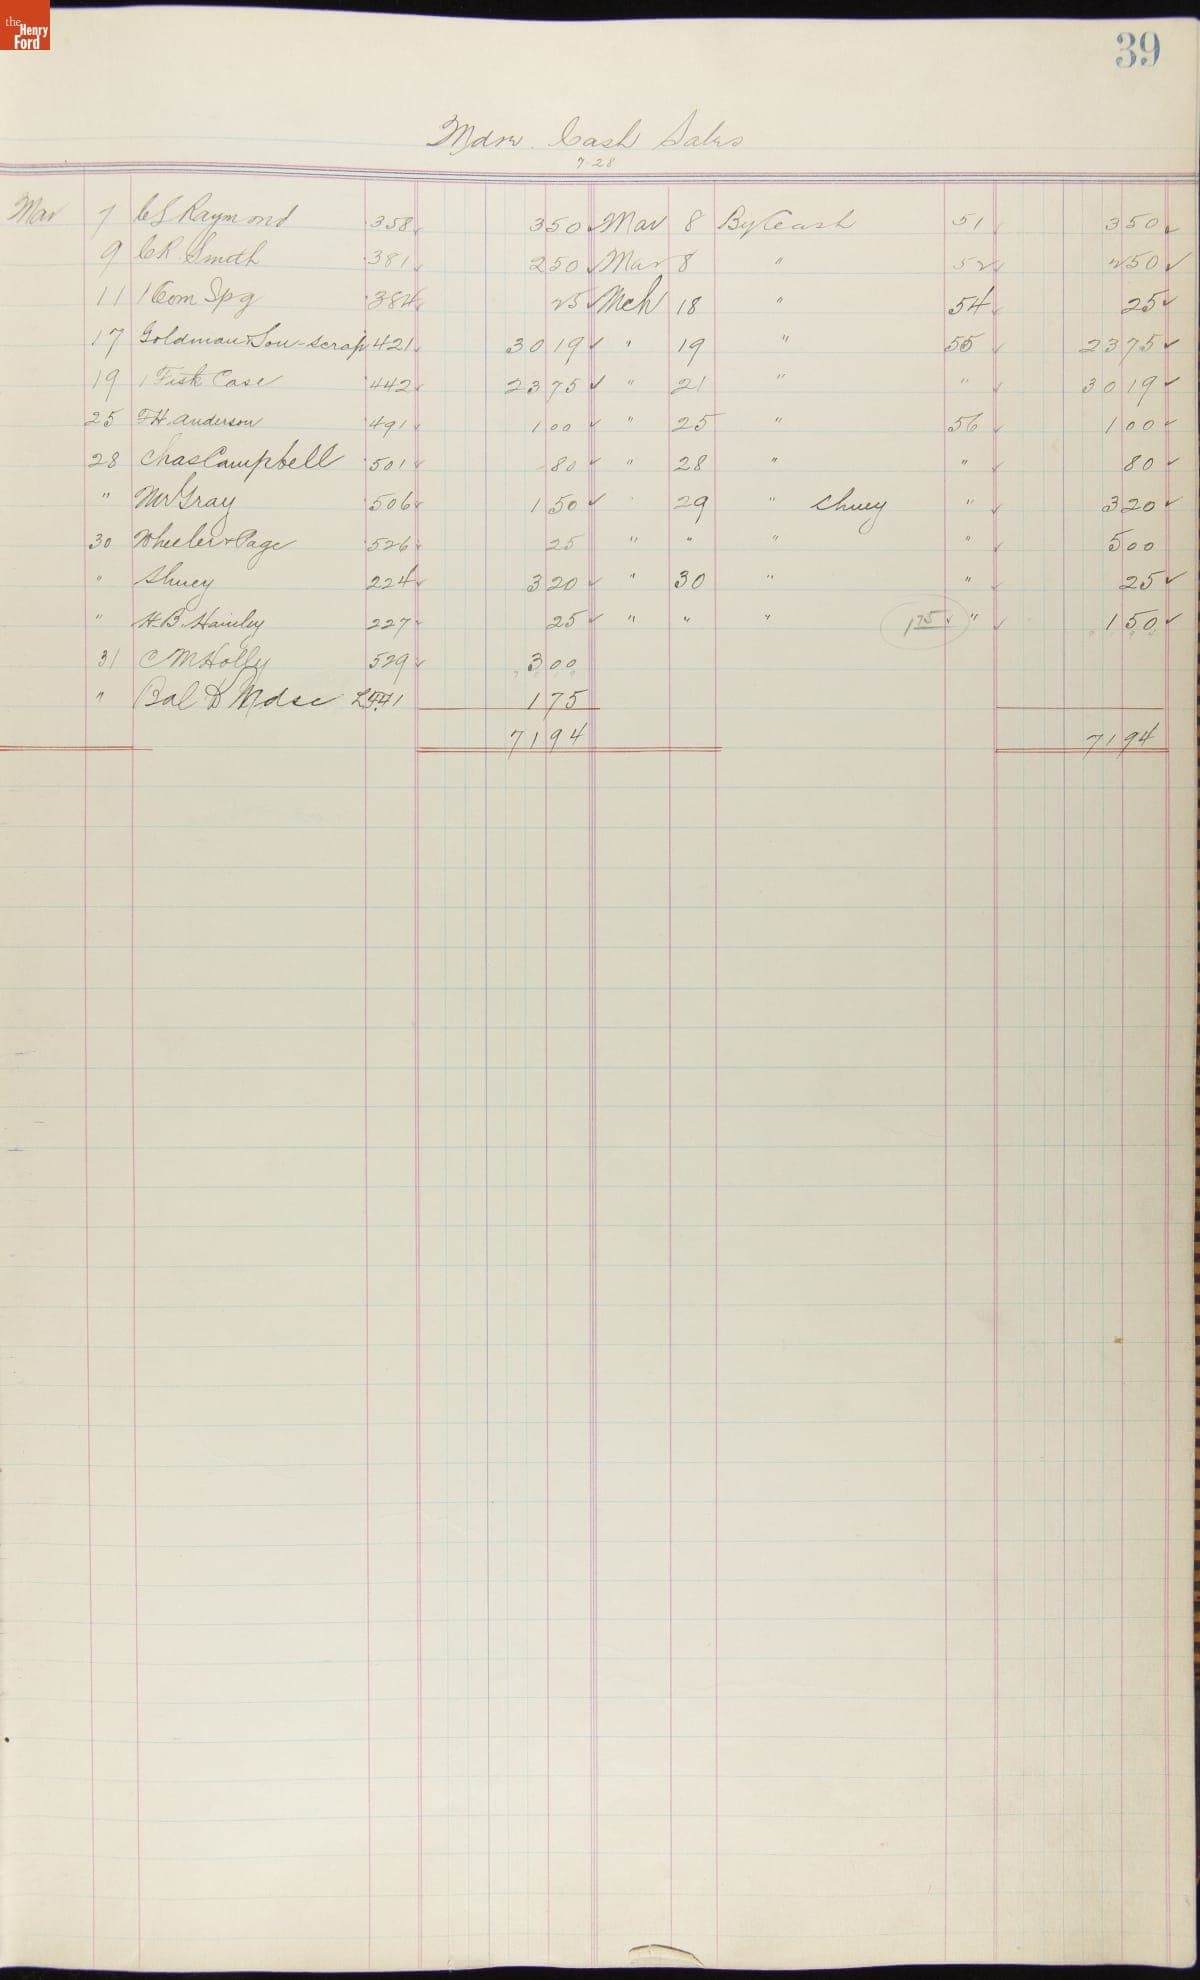 the Henry Ford
39
Mdse. Cash Sales
7-28
Mar 7 C S Raymond 358 350 Mar 8 By Cash 51 350
9 C R. Smith 381 250 Mar 8 " 52 250
11 1 Com Spg 384 25 Mch 18 " 54 25
17 Goldman & Son-scrap 421 3019 " 19 " 55 2375
19 1 Fisk Case 442 2375 " 21 " " 3019
25 F H. Anderson 491 100 " 25 " 56 100
28 Chas Campbell 501 80 " 28 " " 80
" Mr Gray 506 150 " 29 " Shuey " 320
30 Wheeler & Page 526 25 " " " " 500
" Shuey 224 320 " 30 " " 25
" H. B. 227 25 " " " 175 " 150
31 C M Holly 529 300
" Bal Mdse 175
7194 7194